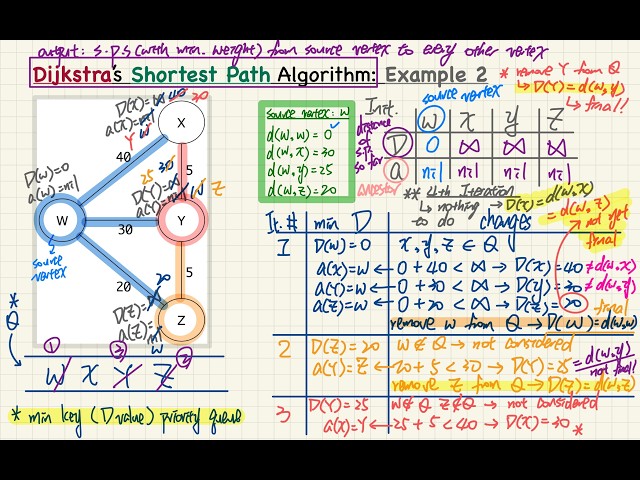 output: S.P.s (with min. weight) from source vertex to every other vertex
Dijkstra's Shortest Path Algorithm: Example 2
* remove Y from Q
↳ D(Y) = d(w,y)
↳ final!
D(X)=∞ 40 30
a(X)=nil
W Y
X
40
5
D(W)=0
a(W)=nil
25 30
D(Y)=∞
a(Y)=nil W Z
W
30
Y
source vertex
20
5
20
D(Z)=∞
a(Z)=nil
W
Z
* Q
① ③ ②
W X Y Z
* min key (D value) priority queue
source vertex: W
d(W,W) = 0
d(W,X) = 30
d(W,Y) = 25
d(W,Z) = 20
source vertex
Init. W X Y Z
distance of S.P. so far
D 0 ∞ ∞ ∞
ancestor
a nil nil nil nil
** 4th Iteration → D(X) = d(W,X)
↳ nothing to do
= d(W,Z)
↳ not yet final
It. # min D changes
1 D(W)=0 X, Y, Z ∈ Q
a(X)=W ← 0 + 40 < ∞ → D(X) = 40 ≠ d(W,X)
a(Y)=W ← 0 + 30 < ∞ → D(Y) = 30 ≠ d(W,Y)
a(Z)=W ← 0 + 20 < ∞ → D(Z) = 20 final
remove W from Q → D(W) = d(W,W)
2 D(Z)=20 W ∉ Q → not considered
a(Y)=Z ← 20 + 5 < 30 → D(Y) = 25 = d(W,Y) not final!
remove Z from Q → D(Z) = d(W,Z)
3 D(Y)=25 W ∉ Q Z ∉ Q → not considered
a(X)=Y ← 25 + 5 < 40 → D(X) = 30 *